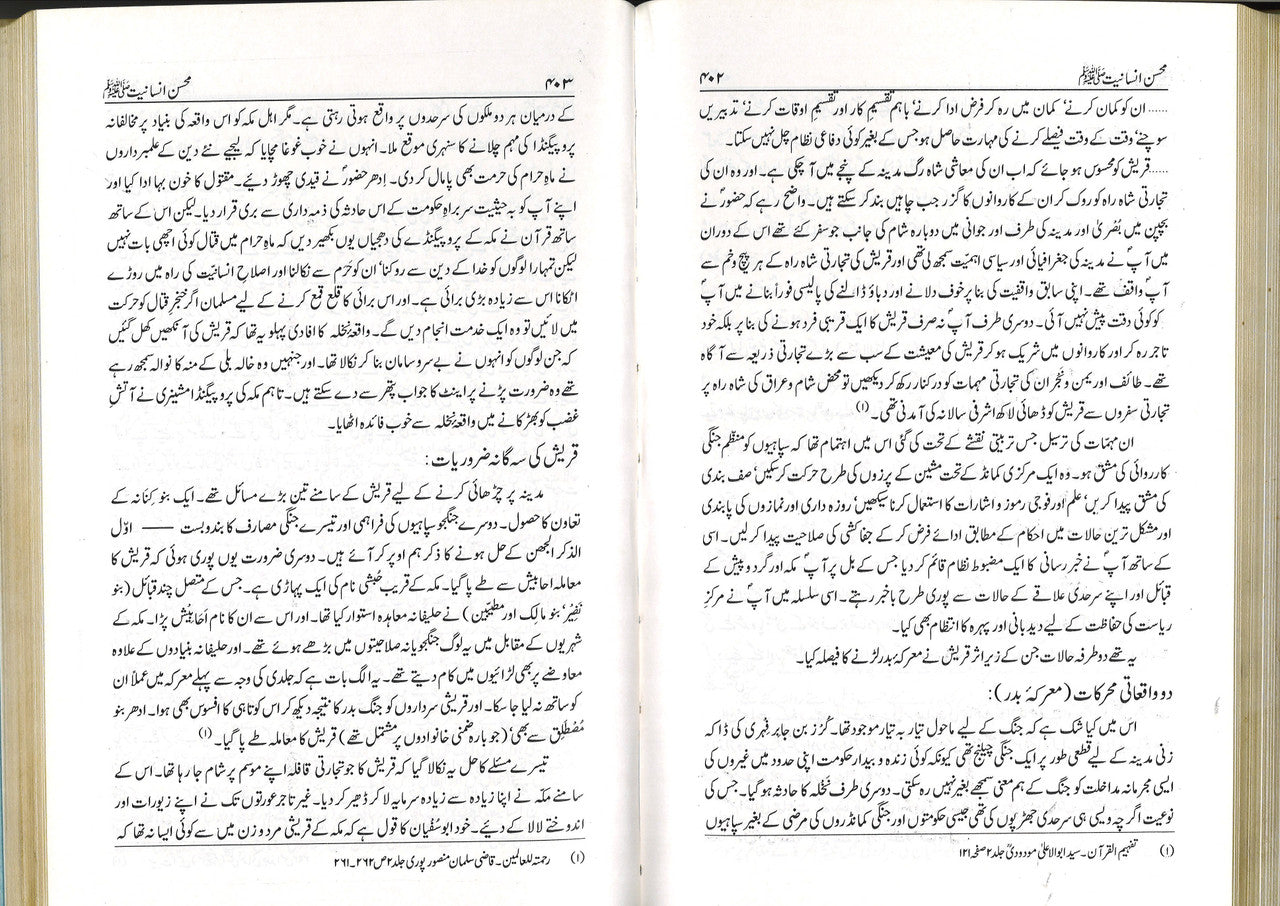 محسن انسانیت ﷺ
۴۰۲
...... ان کو کمان کرنے' کمان میں رہ کر فرض ادا کرنے' باہم تقسیمِ کار اور تقسیمِ اوقات کرنے' تدبیریں
سوچنے' وقت کے وقت فیصلے کرنے کی مہارت حاصل ہو جس کے بغیر کوئی دفاعی نظام چل نہیں سکتا۔
...... قریش کو محسوس ہو جائے کہ اب ان کی معاشی شاہ رگ مدینہ کے پنجے میں آ چکی ہے۔ اور وہ ان کی
تجارتی شاہ راہ کو روک کر ان کے کاروانوں کا گزر جب چاہیں بند کر سکتے ہیں۔ واضح رہے کہ حضورؐ نے
بچپن میں بُصْریٰ اور مدینہ کی طرف اور جوانی میں دوبارہ شام کی جانب جو سفر کئے تھے اس کے دوران
میں آپؐ نے مدینہ کی جغرافیائی اور سیاسی اہمیّت سمجھ لی تھی اور قریش کی تجارتی شاہ راہ کے ہر پیچ و خم سے
آپؐ واقف تھے۔ اپنی سابق واقفیت کی بنا پر خوف دلانے اور دباؤ ڈالنے کی پالیسی فوراً بنانے میں آپؐ
کو کوئی دقت پیش نہیں آئی۔ دوسری طرف آپؐ نہ صرف قریش کا ایک قریبی فرد ہونے کی بنا پر بلکہ خود
تاجر رہ کر اور کاروانوں میں شریک ہو کر قریش کی معیشت کے سب سے بڑے تجارتی ذریعہ سے آگاہ
تھے۔ طائف اور یمن و نجْران کی تجارتی مہمات کو درکنار رکھ کر دیکھیں تو محض شام و عراق کی شاہ راہ پر
تجارتی سفروں سے قریش کو ڈھائی لاکھ اشرفی سالانہ کی آمدنی تھی۔ (۱)
ان مہمّات کی ترسیل جس تربیتی نقشے کے تحت کی گئی اس میں اہتمام تھا کہ سپاہیوں کو منظّم جنگی
کارروائی کی مشق ہو۔ وہ ایک مرکزی کمانڈ کے تحت مشین کے پرزوں کی طرح حرکت کر سکیں' صف بندی
کی مشق پیدا کریں' علَم اور فوجی رموز و اشارات کا استعمال کرنا سیکھیں' روزہ داری اور نمازوں کی پابندی
اور مشکل ترین حالات میں احکام کے مطابق ادائے فرض کر کے جفاکشی کی صلاحیت پیدا کر لیں۔ اسی
کے ساتھ آپؐ نے خبر رسانی کا ایک مضبوط نظام قائم کر دیا جس کے بل پر آپؐ مکہ اور گرد و پیش کے
قبائل اور اپنے سرحدی علاقے کے حالات سے پوری طرح باخبر رہتے۔ اسی سلسلہ میں آپؐ نے مرکزِ
ریاست کی حفاظت کے لیے دیدبانی اور پہرہ کا انتظام بھی کیا۔
یہ تھے دو طرفہ حالات جن کے زیر اثر قریش نے معرکہ بدر لڑنے کا فیصلہ کیا۔
دو واقعاتی محرکات (معرکۂ بدر):
اس میں کیا شک ہے کہ جنگ کے لیے ماحول تیار بہ تیار موجود تھا۔ کُرْز بن جابر فِہری کی ڈاکہ
زنی مدینہ کے لیے قطعی طور پر ایک جنگی چیلنج تھی کیونکہ کوئی زندہ و بیدار حکومت اپنی حدود میں غیروں کی
ایسی مجرمانہ مداخلت کو جنگ کے ہم معنی سمجھے بغیر نہیں رہ سکتی۔ دوسری طرف نَخلہ کا حادثہ ہو گیا۔ جس کی
نوعیت اگرچہ ویسی ہی سرحدی جھڑپوں کی تھی جیسی حکومتوں اور جنگی کمانڈروں کی مرضی کے بغیر سپاہیوں
(۱) تفہیم القرآن۔ سید ابوالاعلیٰ مودودیؒ جلد ۲ صفحہ ۱۲۱
محسن انسانیت ﷺ
۴۰۳
کے درمیان ہر دو ملکوں کی سرحدوں پر واقع ہوتی رہتی ہے۔ مگر اہل مکہ کو اس واقعہ کی بنیاد پر مخالفانہ
پروپیگنڈا کی مہم چلانے کا سنہری موقع ملا۔ انہوں نے خوب غوغا مچایا کہ لیجیے نئے دین کے علمبرداروں
نے ماہِ حرام کی حرمت بھی پامال کر دی۔ اِدھر حضورؐ نے قیدی چھوڑ دیئے۔ مقتول کا خون بہا ادا کیا اور
اپنے آپ کو بہ حیثیت سربراہِ حکومت کے اس حادثہ کی ذمہ داری سے بری قرار دیا۔ لیکن اس کے ساتھ
ساتھ قرآن نے مکہ کے پروپیگنڈے کی دھجیاں یوں بکھیر دیں کہ ماہ حرام میں قتال کوئی اچھی بات نہیں
لیکن تمہارا لوگوں کو خدا کے دین سے روکنا' ان کو حَرَم سے نکالنا اور اصلاحِ انسانیّت کی راہ میں روڑے
اٹکانا اس سے زیادہ بڑی برائی ہے۔ اور اس برائی کا قلع قمع کرنے کے لیے مسلمان اگر خنجرِ قتال کو حرکت
میں لائیں تو وہ ایک خدمت انجام دیں گے۔ واقعۂ نخلہ کا افادی پہلو یہ تھا کہ قریش کی آنکھیں کھل گئیں
کہ جن لوگوں کو انہوں نے بے سر و سامان بنا کر نکالا تھا۔ اور جنہیں وہ خالہ بلی کے منہ کا نوالہ سمجھ رہے
تھے وہ ضرورت پڑنے پر اینٹ کا جواب پتھر سے دے سکتے ہیں۔ تاہم مکہ کی پروپیگنڈا مشینری نے آتشِ
غضب کو بھڑکانے میں واقعۂ نخلہ سے خوب فائدہ اٹھایا۔
قریش کی سہ گانہ ضروریات:
مدینہ پر چڑھائی کرنے کے لیے قریش کے سامنے تین بڑے مسائل تھے۔ ایک بنو کِنانہ کے
تعاون کا حصول۔ دوسرے جنگجو سپاہیوں کی فراہمی اور تیسرے جنگی مصارف کا بندوبست —— اوّل
الذکر الجھن کے حل ہونے کا ذکر ہم اوپر کر آئے ہیں۔ دوسری ضرورت یوں پوری ہوئی کہ قریش کا
معاملہ احابیش سے طے پا گیا۔ مکہ کے قریب حُبشی نام کی ایک پہاڑی ہے۔ جس کے متصل چند قبائل (بنو
نضِیْر' بنو مالک اور مطیبین) نے حلیفانہ معاہدہ استوار کیا تھا۔ اور اس سے ان کا نام اَحَابِیْش پڑا۔ مکہ کے
شہریوں کے مقابل میں یہ لوگ جنگجویانہ صلاحیتوں میں بڑھے ہوئے تھے۔ اور حلیفانہ بنیادوں کے علاوہ
معاوضے پر بھی لڑائیوں میں کام دیتے تھے۔ یہ الگ بات ہے کہ جلدی کی وجہ سے پہلے معرکہ میں عملاً ان
کو ساتھ نہ لیا جا سکا۔ اور قریشی سرداروں کو جنگ بدر کا نتیجہ دیکھ کر اس کوتاہی کا افسوس بھی ہوا۔ ادھر بنو
مُصْطَلِق سے بھی' (جو بارہ ضمنی خانوادوں پر مشتمل تھے) قریش کا معاملہ طے پا گیا۔ (۱)
تیسرے مسئلے کا حل یہ نکالا گیا کہ قریش کا جو تجارتی قافلہ اپنے موسم پر شام جا رہا تھا۔ اس کے
سامنے مکّہ نے اپنا زیادہ سے زیادہ سرمایہ لا کر ڈھیر کر دیا۔ غیر تاجر عورتوں تک نے اپنے زیورات اور
اندوختے لا لا کے دیئے۔ خود ابو سُفیان کا قول ہے کہ مکہ کے قریشی مرد و زن میں سے کوئی ایسا نہ تھا کہ
(۱) رحمتہ للعالمین۔ قاضی سلمان منصور پوری جلد ۲ ص ۲۶۲۔۲۶۱